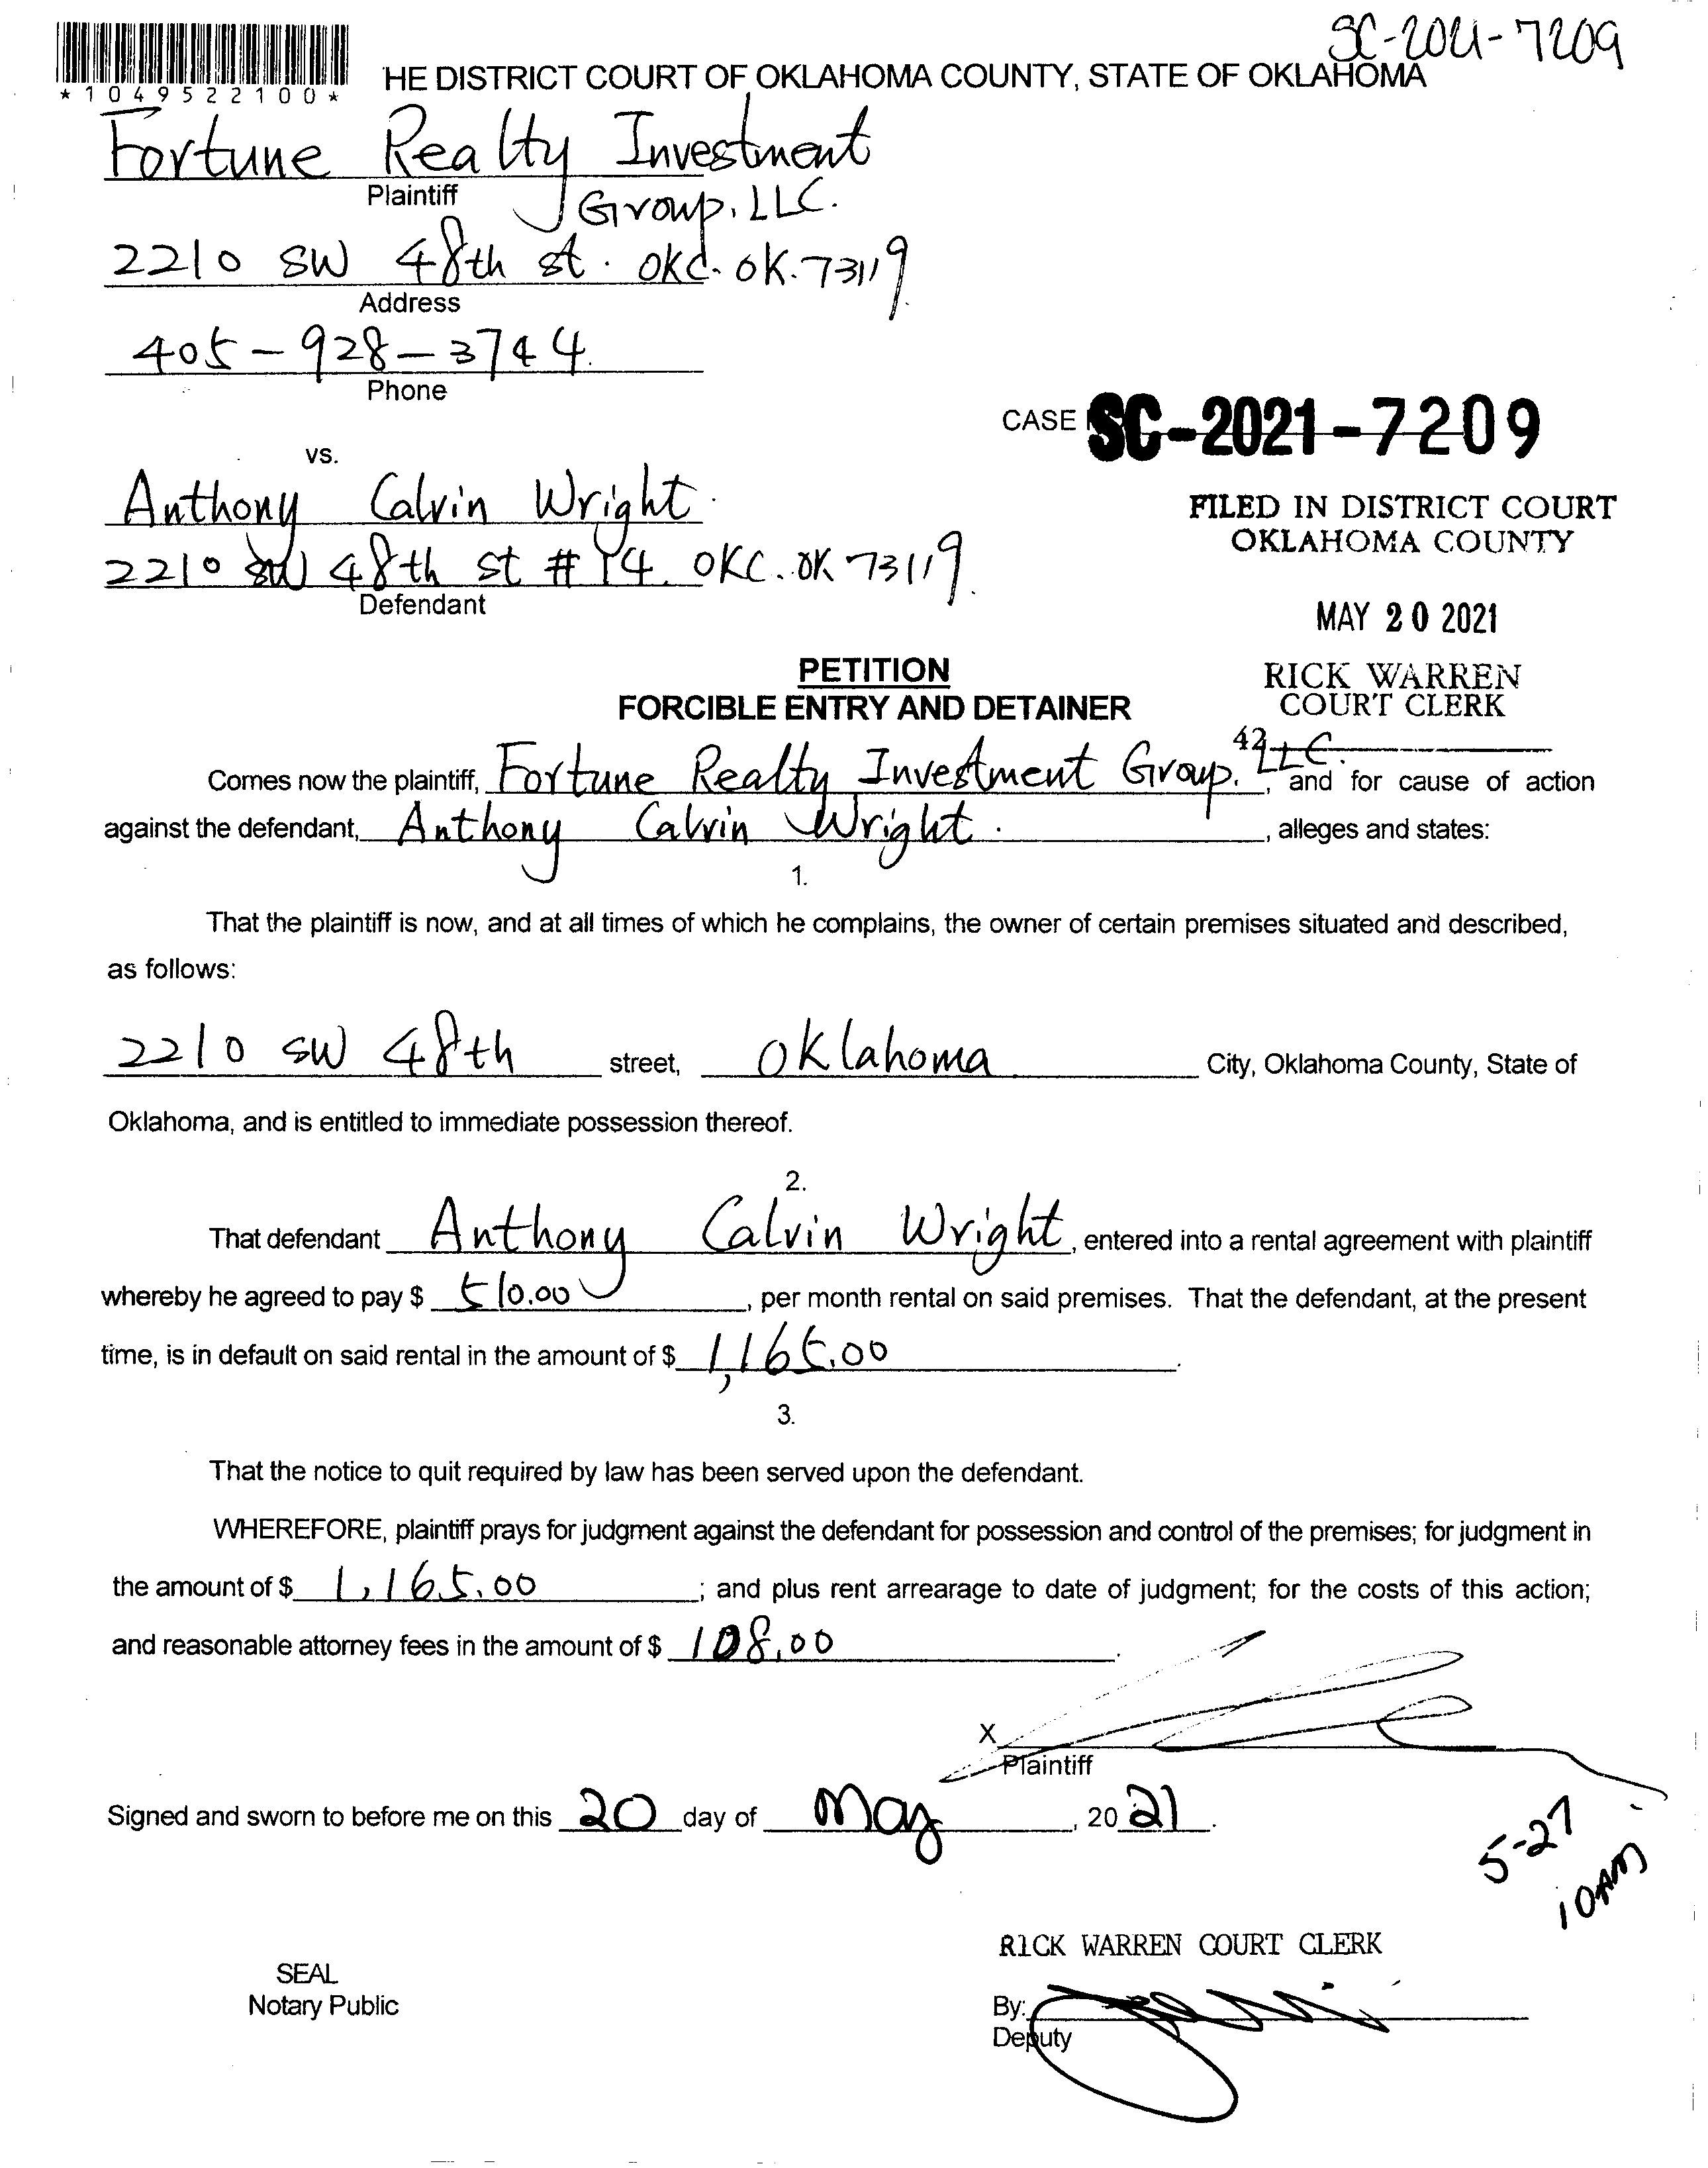 SC-2021-7209
*1049522100*
HE DISTRICT COURT OF OKLAHOMA COUNTY, STATE OF OKLAHOMA
Fortune Realty Investment
Plaintiff
Group, LLC.
2210 SW 48th st. OKC. OK. 73119
Address
405-928-3744
Phone
CASE SC-2021-7209
vs.
Anthony Calvin Wright
2210 SW 48th st # 14. OKC. OK 73119.
Defendant
FILED IN DISTRICT COURT
OKLAHOMA COUNTY
MAY 20 2021
RICK WARREN
COURT CLERK
42
PETITION
FORCIBLE ENTRY AND DETAINER
Comes now the plaintiff, Fortune Realty Investment Group, LLC., and for cause of action
against the defendant, Anthony Calvin Wright., alleges and states:
1.
That the plaintiff is now, and at all times of which he complains, the owner of certain premises situated and described,
as follows:
2210 SW 48th street, Oklahoma City, Oklahoma County, State of
Oklahoma, and is entitled to immediate possession thereof.
2.
That defendant Anthony Calvin Wright, entered into a rental agreement with plaintiff
whereby he agreed to pay $ 510.00, per month rental on said premises. That the defendant, at the present
time, is in default on said rental in the amount of $ 1,165.00.
3.
That the notice to quit required by law has been served upon the defendant.
WHEREFORE, plaintiff prays for judgment against the defendant for possession and control of the premises; for judgment in
the amount of $ 1,165.00; and plus rent arrearage to date of judgment; for the costs of this action;
and reasonable attorney fees in the amount of $ 108.00.
X
Plaintiff
Signed and sworn to before me on this 20 day of May, 2021.
5-27
10AM
RICK WARREN COURT CLERK
SEAL
Notary Public
By:
Deputy